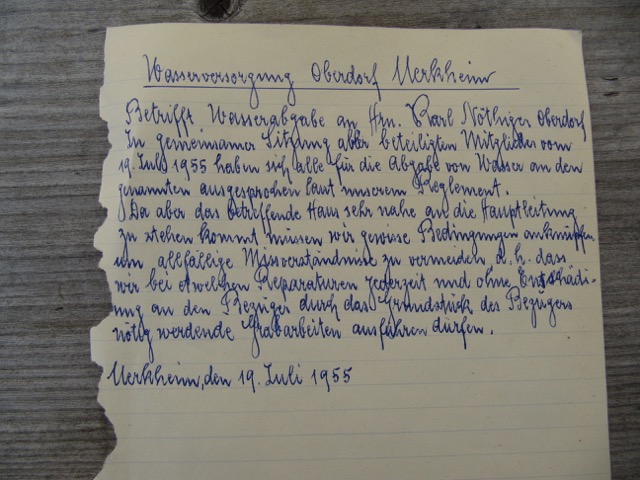 Wasserversorgung Oberdorf Uerkheim
Betrifft Wasserabgabe an Hrn. Karl Nöthiger Oberdorf
In gemeinsamer Sitzung aller beteiligten Mitglieder vom
19. Juli 1955 haben sich alle für die Abgabe von Wasser an den
genannten ausgesprochen laut unserem Reglement.
Da aber das betreffende Haus sehr nahe an die Hauptleitung
zu stehen kommt müssen wir gewisse Bedingungen anknüpfen
um allfällige Missverständnisse zu vermeiden d.h. dass
wir bei etwelchen Reparaturen jederzeit und ohne Entschädi-
ung an den Bezüger durch das Grundstück des Bezügers
nötig werdende Grabarbeiten ausführen dürfen.
Uerkheim, den 19. Juli 1955